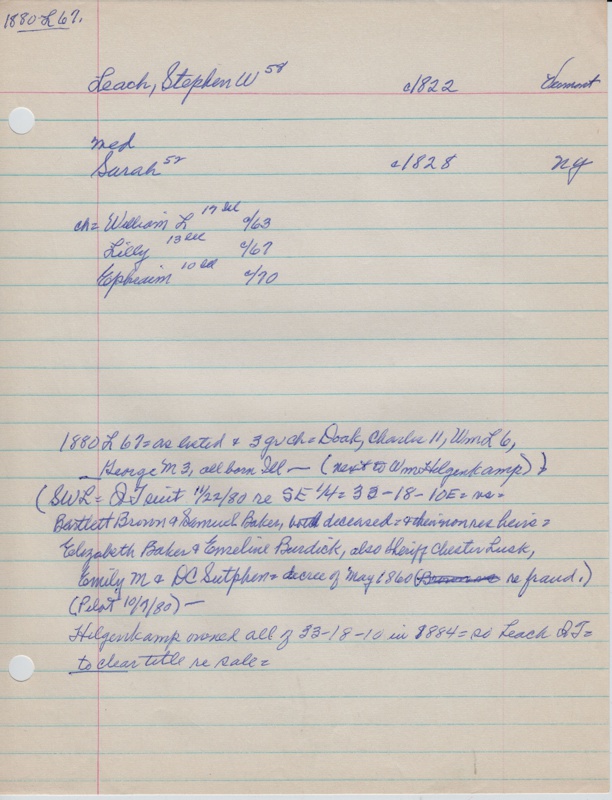 1880 L 67.
Leach, Stephen W 58 c1822 Vermont
med
Sarah 52 c1828 NY
ch = William L 17 Ill c/63
Lilly 13 Ill c/67
Ephraim 10 Ill c/70
1880 L 67 = as listed & 3 gr ch = Doak, Charles 11, Wm L 6,
George M 3, all born Ill — (next to Wm Hilgenkamp)
(SWL = QT suit 11/22/80 re SE 1/4 = 33-18-10E = vs =
Bartlett Brown & Samuel Baker, both deceased = & their non res heirs =
Elizabeth Baker & Emeline Burdick, also Sheriff Chester Lusk,
Emily M & DC Sutphen = decree of May 1860 re fraud.)
(Pilot 10/7/80) —
Hilgenkamp owned all of 33-18-10 in 1884 = so Leach QT =
to clear title re sale =